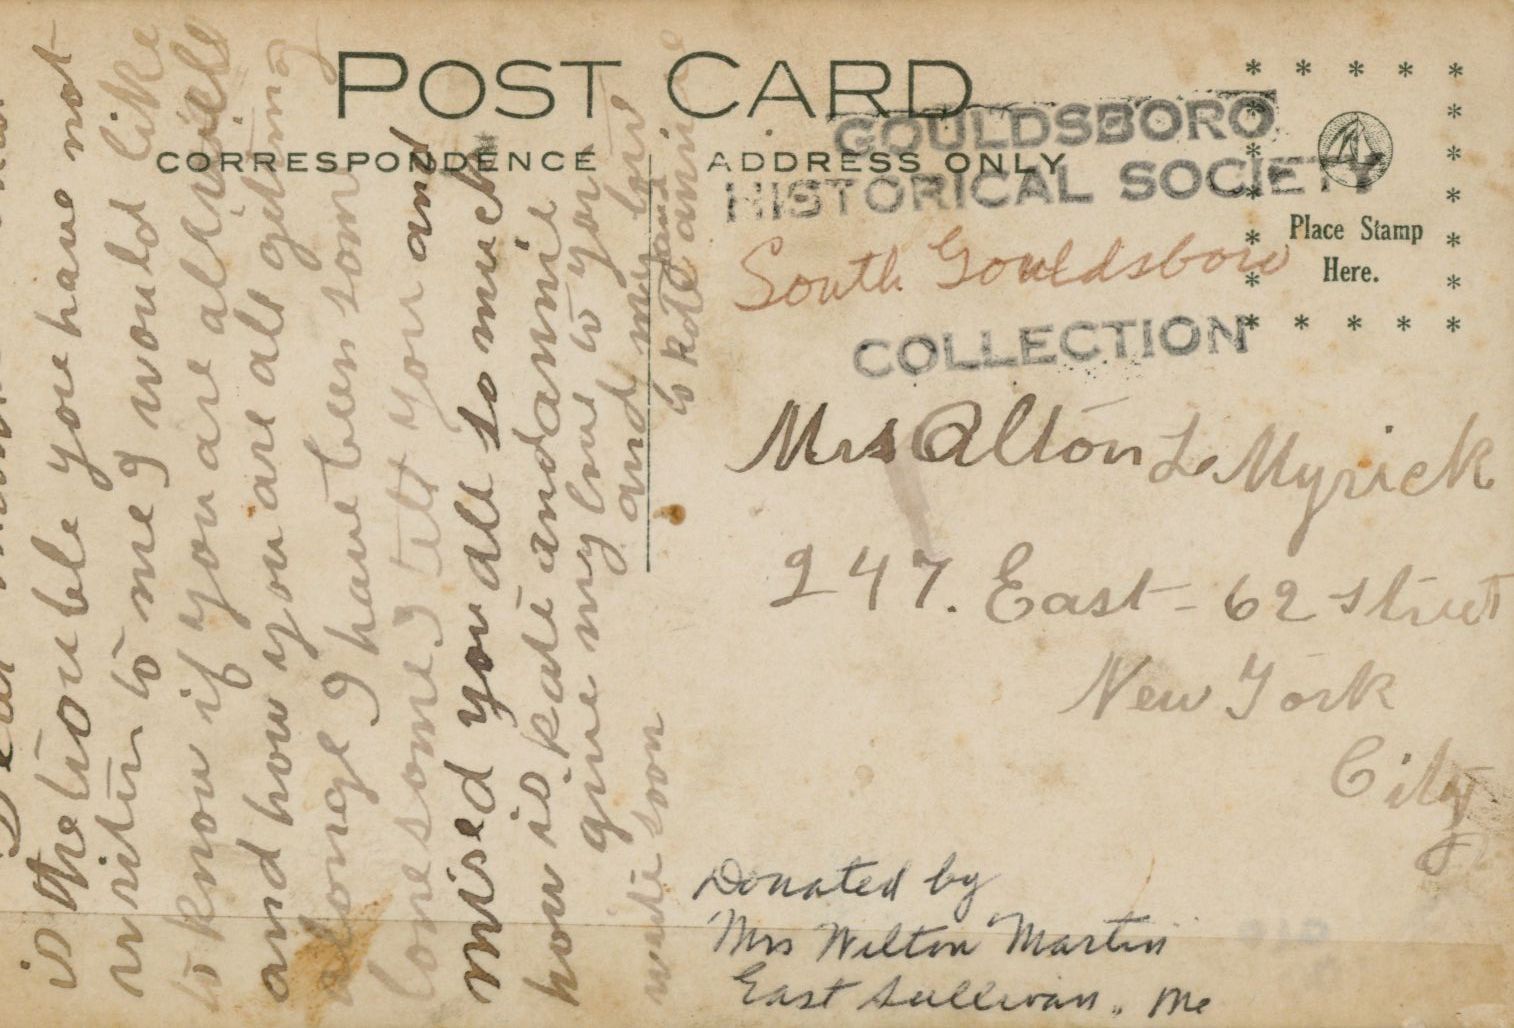 POST CARD
CORRESPONDENCE
ADDRESS ONLY
Place Stamp
Here.
GOULDSBORO
HISTORICAL SOCIETY
South Gouldsboro
COLLECTION
Mrs Alton L Myrick
247. East - 62 Street
New York
City
Donated by
Mrs Wilton Martin
East Sullivan, Me
Dear
is the trouble you have not
writin to me I would like
to know if you are all well
and how you are all geting
alonge I have been som
lonesome I tell you and
mised you all so much
how is kate and annie
give my love to you
and my love
to kate and annie
write soon